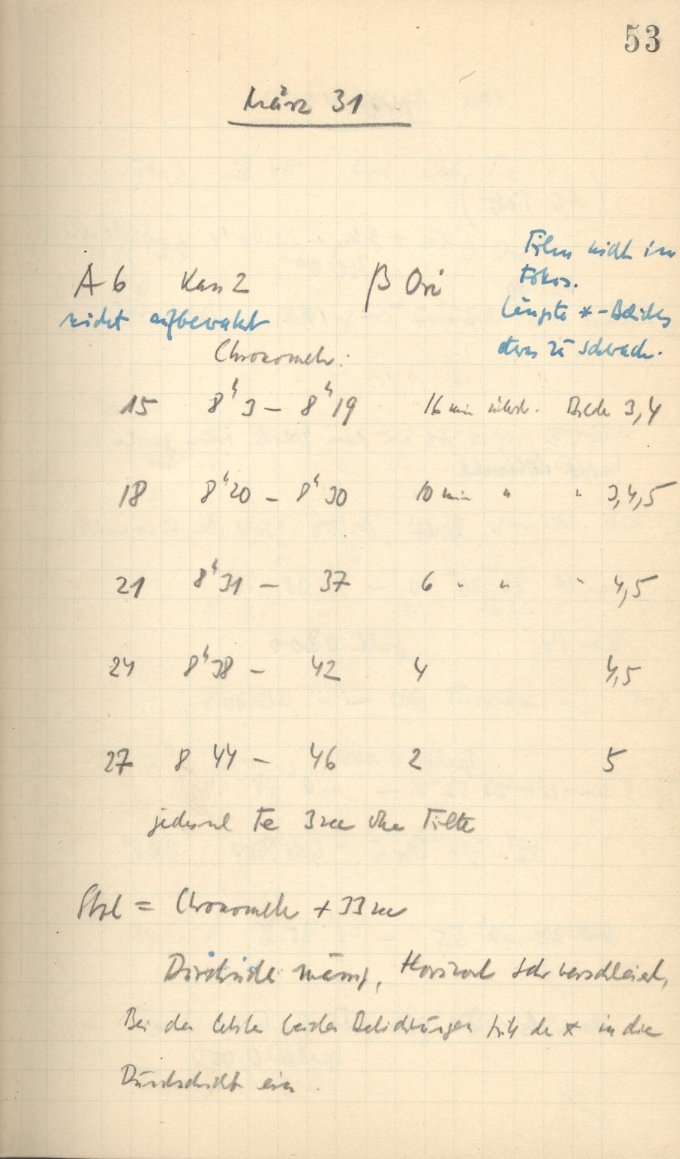 53
März 31
Film nicht im
A 6 Kass 2 β Ori Fokus.
nicht aufbewahrt Längste *-Belichtg
Chronometer: etwas zu schwach.
15 8ʰ 3 – 8ʰ 19 16 min 3,4
18 8ʰ 20 – 8ʰ 30 10 min " " 3,4,5
21 8ʰ 31 – 37 6 " " " 4,5
24 8ʰ 38 – 42 4 4,5
27 8 44 – 46 2 5
jedesmal 3 sec ohne Filter
= Chronometer + 33 sec
Durchsicht mässig, Horizont sehr verschleiert,
Bei den letzten beiden Belichtungen tritt der * in die
Dunstschicht ein.